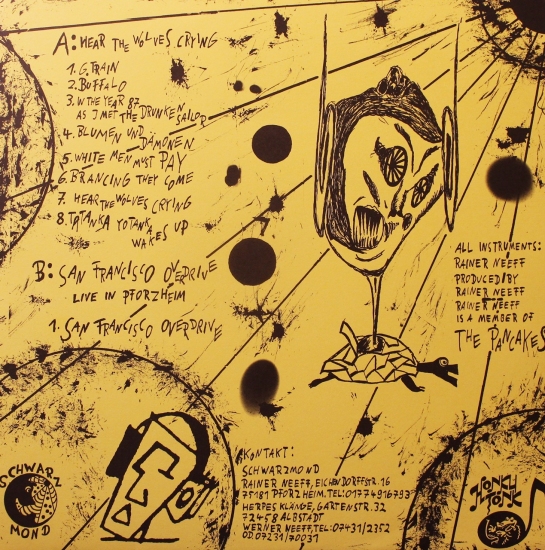 A: HEAR THE WOLVES CRYING
1. G. TRAIN
2. BUFFALO
3. IN THE YEAR 87
AS I MET THE DRUNKEN SAILOR
4. BLUMEN UND DÄMONEN
5. WHITE MEN MUST PAY
6. BRANCING THEY COME
7. HEAR THE WOLVES CRYING
8. TATANKA YOTANKA
WAKES UP
B: SAN FRANCISCO OVERDRIVE
LIVE IN PFORZHEIM
1. SAN FRANCISCO OVERDRIVE
ALL INSTRUMENTS:
RAINER NEEFF
PRODUCED BY
RAINER NEEFF
RAINER NEEFF
IS A MEMBER OF
THE PANCAKES
KONTAKT:
SCHWARZMOND
RAINER NEEFF, EICHENDORFFSTR. 16
75181 PFORZHEIM. TEL: 01774916793
HERPES KLÄNGE, GARTENSTR. 32
72458 ALBSTADT
WERNER NEEFF, TEL: 07431/2352
OD. 07231/70031
SCHWARZ
MOND
HONKY
TONK